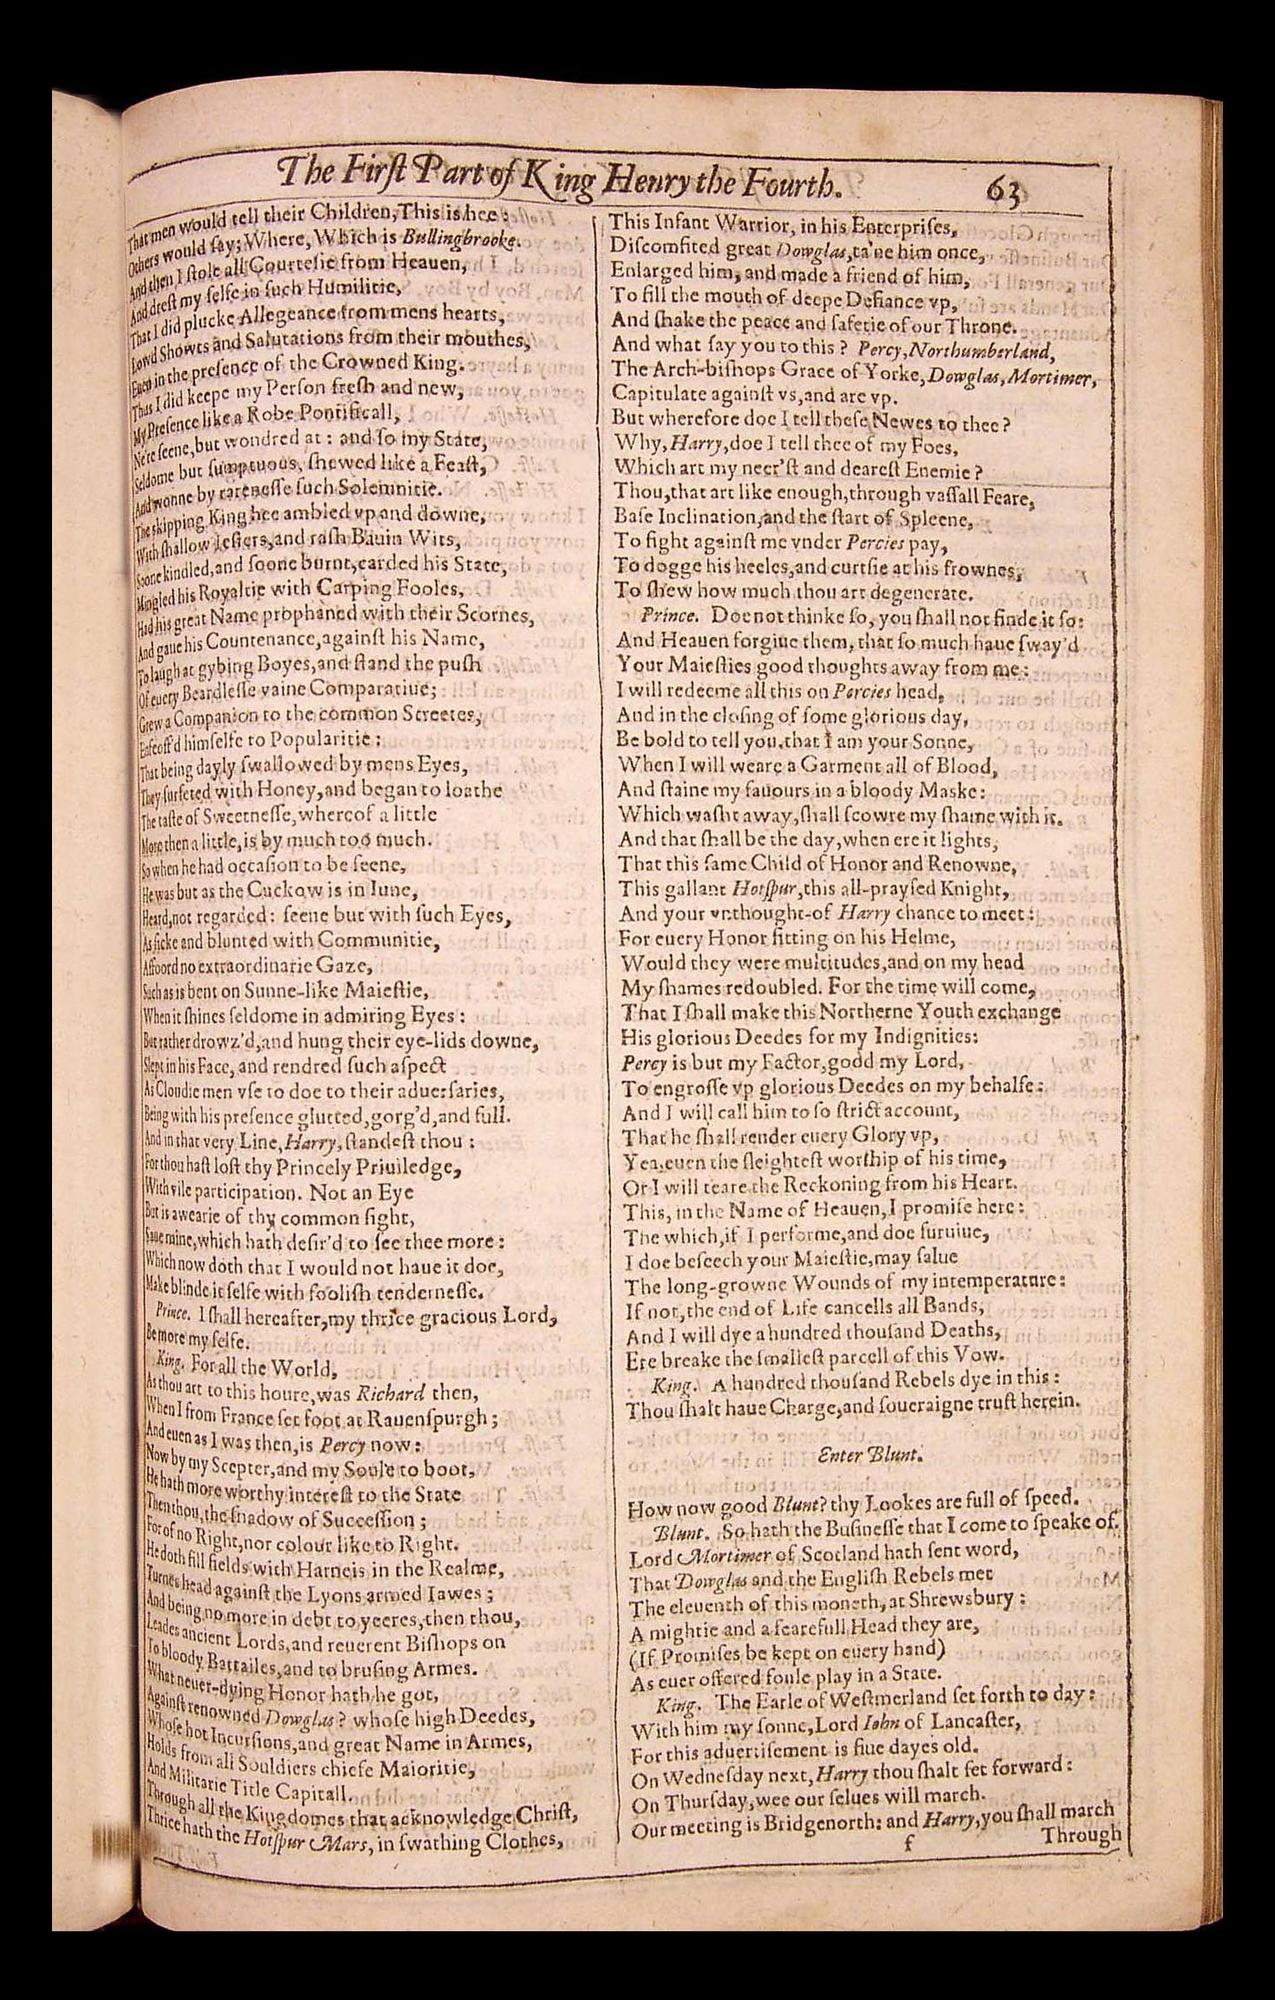 The First Part of King Henry the Fourth. 63
That men would tell their Children, This is hee:
Others would say; Where, Which is Bullingbrooke.
And then I stole all Courtesie from Heauen,
And drest my selfe in such Humilitie,
That I did plucke Allegeance from mens hearts,
Lowd Showts and Salutations from their mouthes,
Euen in the presence of the Crowned King.
Thus I did keepe my Person fresh and new,
My Presence like a Robe Pontificall,
Ne're seene, but wondred at: and so my State,
Seldome but sumptuous, shewed like a Feast,
And wonne by rarenesse such Solemnitie.
The skipping King hee ambled vp and downe,
With shallow Iesters, and rash Bauin Wits,
Soone kindled, and soone burnt, carded his State,
Mingled his Royaltie with Carping Fooles,
Had his great Name prophaned with their Scornes,
And gaue his Countenance, against his Name,
To laugh at gybing Boyes, and stand the push
Of euery Beardlesse vaine Comparatiue;
Grew a Companion to the common Streetes,
Enfeoff'd himselfe to Popularitie:
That being dayly swallowed by mens Eyes,
They surfeted with Honey, and began to loathe
The taste of Sweetnesse, whereof a little
More then a little, is by much too much.
So when he had occasion to be seene,
He was but as the Cuckow is in Iune,
Heard, not regarded: seene but with such Eyes,
As sicke and blunted with Communitie,
Affoord no extraordinarie Gaze,
Such as is bent on Sunne-like Maiestie,
When it shines seldome in admiring Eyes:
But rather drowz'd, and hung their eye-lids downe,
Slept in his Face, and rendred such aspect
As Cloudie men vse to doe to their aduersaries,
Being with his presence glutted, gorg'd, and full.
And in that very Line, Harry, standest thou:
For thou hast lost thy Princely Priuiledge,
With vile participation. Not an Eye
But is awearie of thy common sight,
Saue mine, which hath desir'd to see thee more:
Which now doth that I would not haue it doe,
Make blinde it selfe with foolish tendernesse.
Prince. I shall hereafter, my thrice gracious Lord,
Be more my selfe.
King. For all the World,
As thou art to this houre, was Richard then,
When I from France set foot at Rauenspurgh;
And euen as I was then, is Percy now:
Now by my Scepter, and my Soule to boot,
He hath more worthy interest to the State
Then thou, the shadow of Succession;
For of no Right, nor colour like to Right.
He doth fill fields with Harneis in the Realme,
Turnes head against the Lyons armed Iawes;
And being no more in debt to yeeres, then thou,
Leades ancient Lords, and reuerent Bishops on
To bloody Battailes, and to brusing Armes.
What neuer-dying Honor hath he got,
Against renowned Dowglas? whose high Deedes,
Whose hot Incursions, and great Name in Armes,
Holds from all Souldiers chiefe Maioritie,
And Militarie Title Capitall.
Through all the Kingdomes that acknowledge Christ,
Thrice hath the Hotspur Mars, in swathing Clothes,
This Infant Warrior, in his Enterprises,
Discomfited great Dowglas, ta'ne him once,
Enlarged him, and made a friend of him,
To fill the mouth of deepe Defiance vp,
And shake the peace and safetie of our Throne.
And what say you to this? Percy, Northumberland,
The Arch-bishops Grace of Yorke, Dowglas, Mortimer,
Capitulate against vs, and are vp.
But wherefore doe I tell these Newes to thee?
Why, Harry, doe I tell thee of my Foes,
Which art my neer'st and dearest Enemie?
Thou, that art like enough, through vassall Feare,
Base Inclination, and the start of Spleene,
To fight against me vnder Percies pay,
To dogge his heeles, and curtsie at his frownes,
To shew how much thou art degenerate.
Prince. Doe not thinke so, you shall not finde it so:
And Heauen forgiue them, that so much haue sway'd
Your Maiesties good thoughts away from me:
I will redeeme all this on Percies head,
And in the closing of some glorious day,
Be bold to tell you, that I am your Sonne,
When I will weare a Garment all of Blood,
And staine my fauours in a bloody Maske:
Which washt away, shall scowre my shame with it.
And that shall be the day, when ere it lights,
That this same Child of Honor and Renowne,
This gallant Hotspur, this all-praysed Knight,
And your vnthought-of Harry chance to meet:
For euery Honor sitting on his Helme,
Would they were multitudes, and on my head
My shames redoubled. For the time will come,
That I shall make this Northerne Youth exchange
His glorious Deedes for my Indignities:
Percy is but my Factor, good my Lord,
To engrosse vp glorious Deedes on my behalfe:
And I will call him to so strict account,
That he shall render euery Glory vp,
Yea, euen the sleightest worship of his time,
Or I will teare the Reckoning from his Heart.
This, in the Name of Heauen, I promise here:
The which, if I performe, and doe suruiue,
I doe beseech your Maiestie, may salue
The long-growne Wounds of my intemperature:
If not, the end of Life cancells all Bands,
And I will dye a hundred thousand Deaths,
Ere breake the smallest parcell of this Vow.
King. A hundred thousand Rebels dye in this:
Thou shalt haue Charge, and soueraigne trust herein.
Enter Blunt.
How now good Blunt? thy Lookes are full of speed.
Blunt. So hath the Businesse that I come to speake of.
Lord Mortimer of Scotland hath sent word,
That Dowglas and the English Rebels met
The eleuenth of this moneth, at Shrewsbury:
A mightie and a fearefull Head they are,
(If Promises be kept on euery hand)
As euer offered foule play in a State.
King. The Earle of Westmerland set forth to day:
With him my sonne, Lord Iohn of Lancaster,
For this aduertisement is fiue dayes old.
On Wednesday next, Harry thou shalt set forward:
On Thursday, wee our selues will march.
Our meeting is Bridgenorth: and Harry, you shall march
f Through